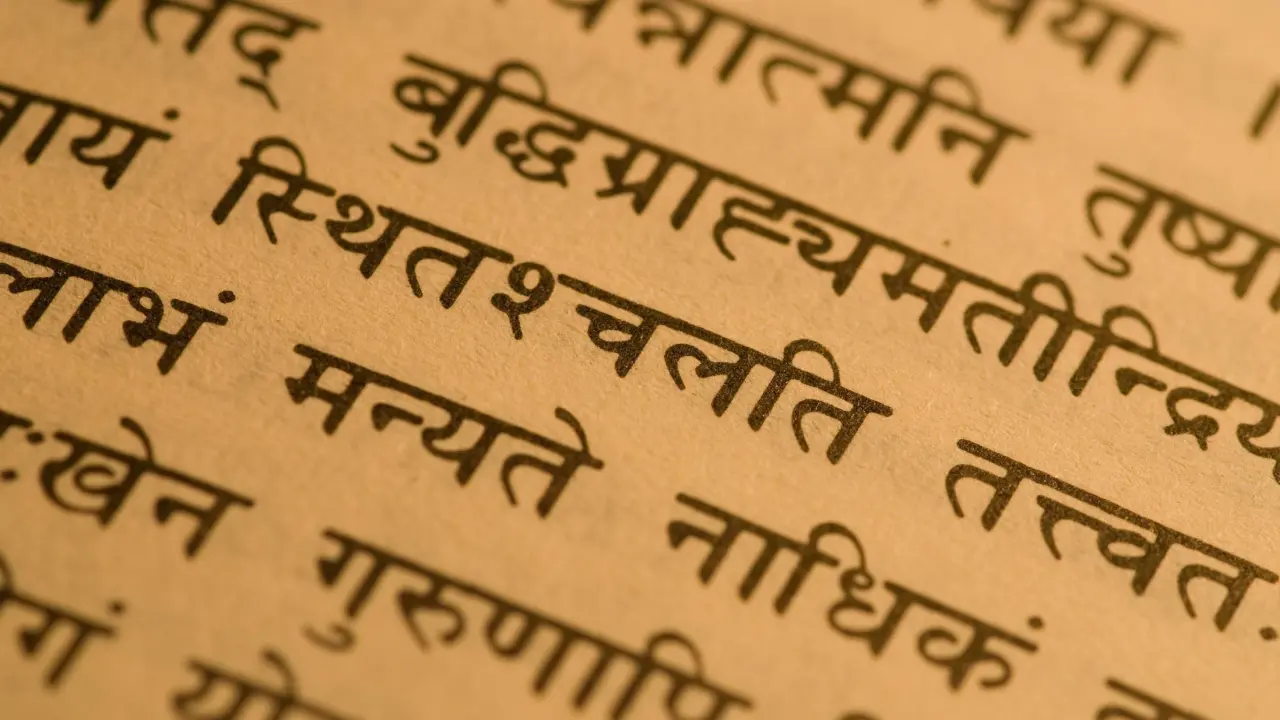 न्नात्मनि तुष्य
बुद्धिग्राह्यमतीन्द्रिय
स्थितश्चलति तत्त्वतः
लाभं मन्यते नाधिकं
ःखेन गुरुणापि